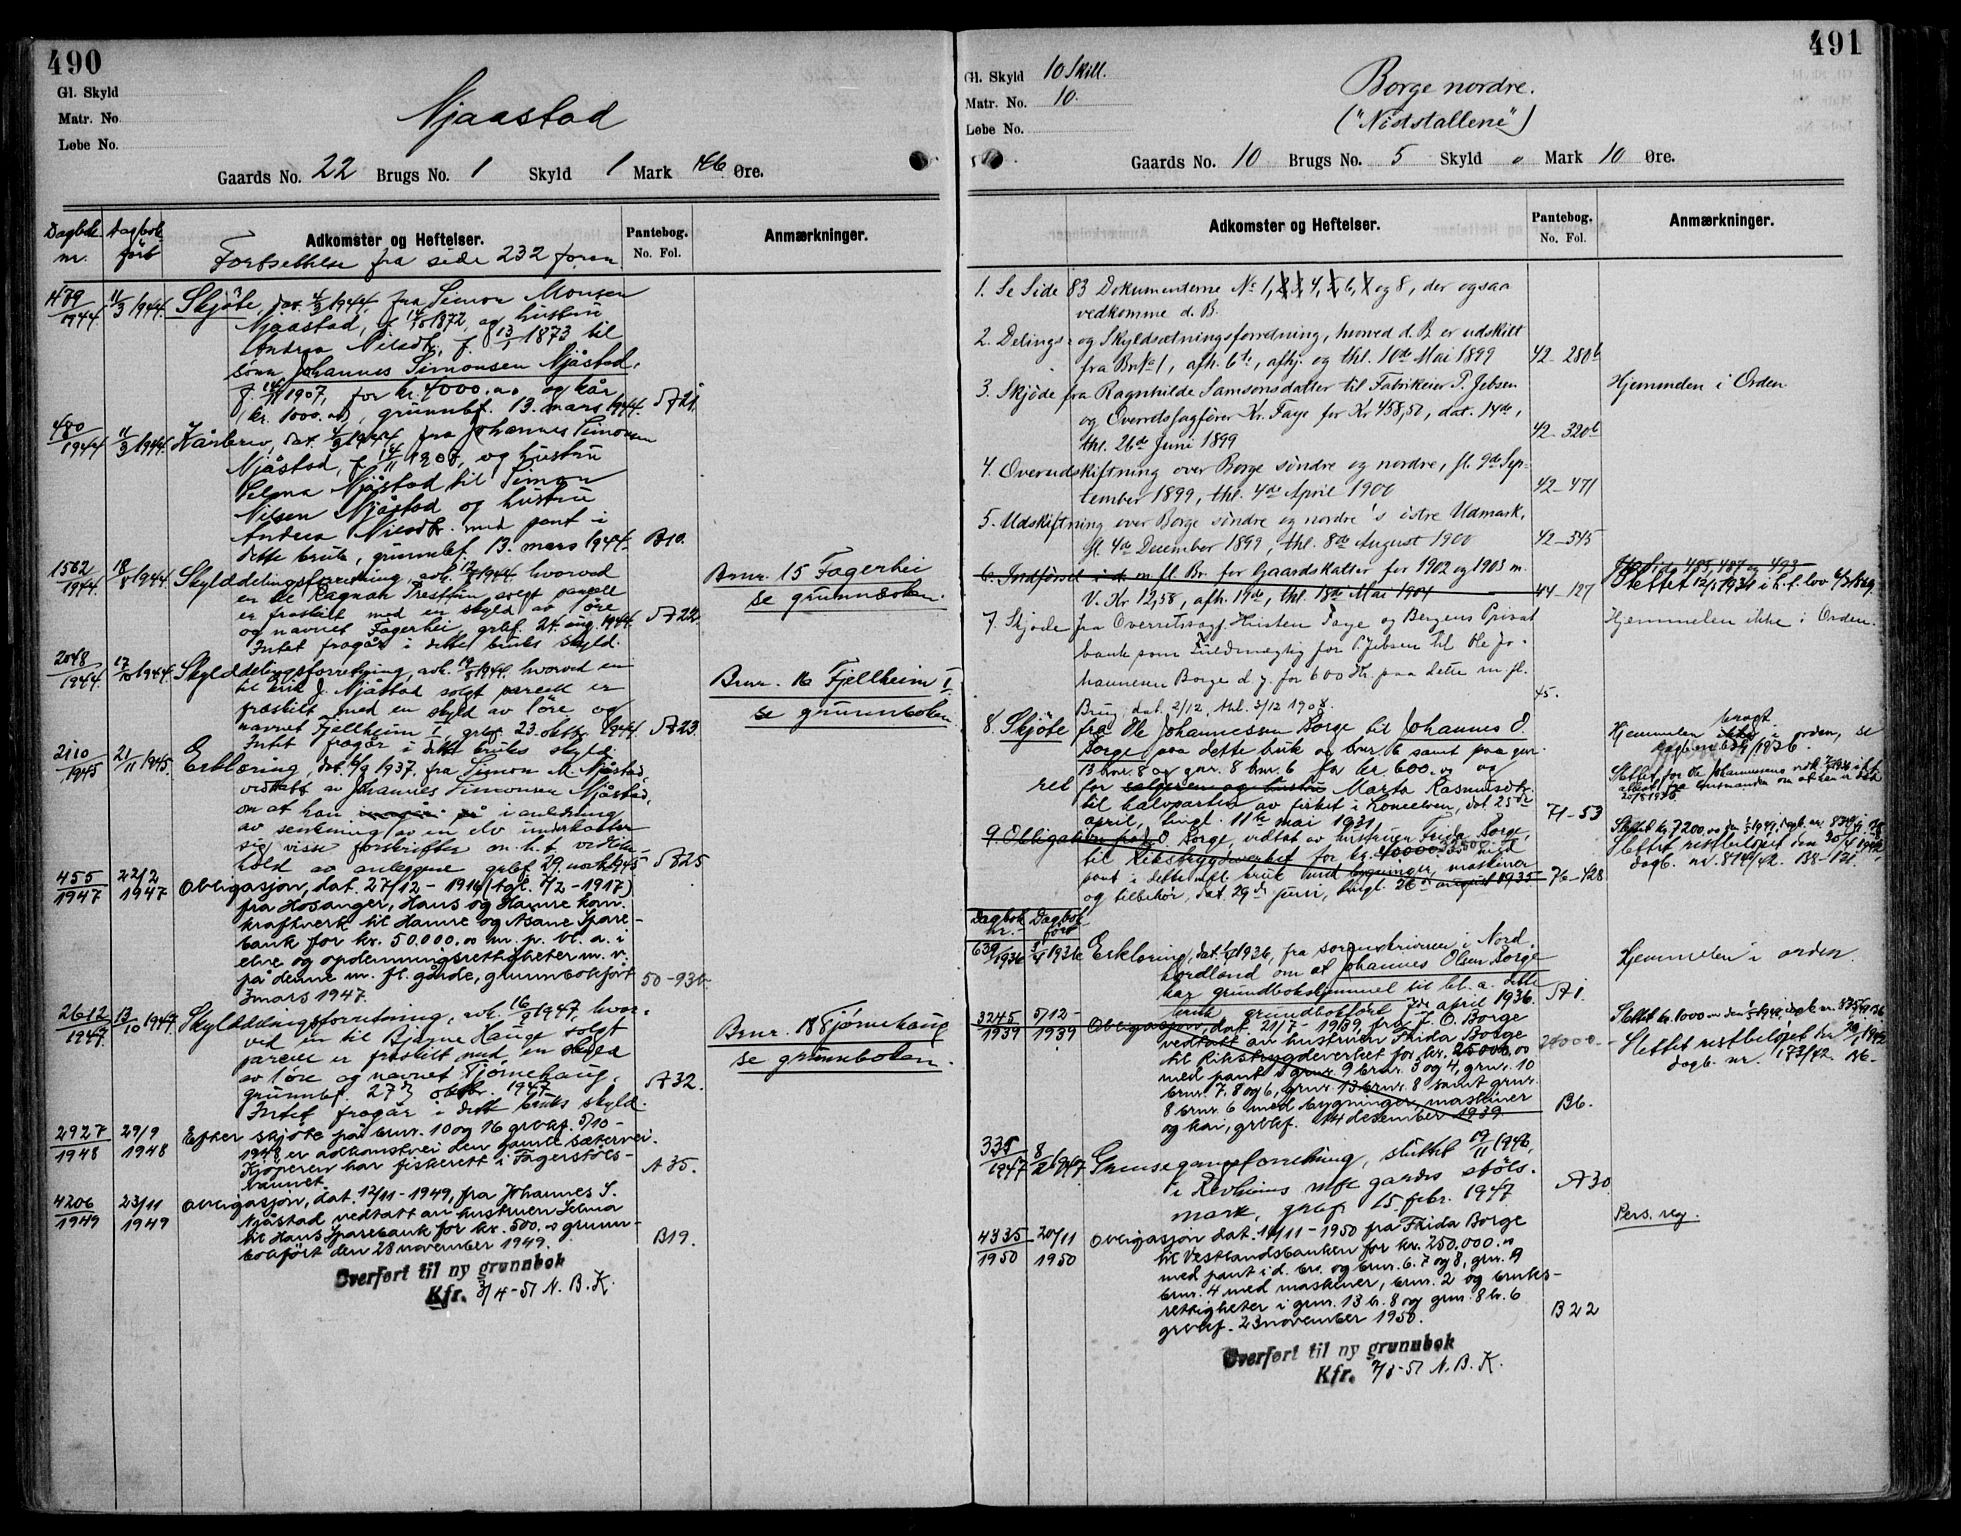 490
Gl. Skyld
Matr. No.
Løbe No.
Njaastad
Gaards No. 22 Brugs No. 1 Skyld 1 Mark 46 Øre.
Dagbok nr. Dagbok ført Adkomster og Heftelser. Pantebog. No. Fol. Anmærkninger.
Fortsettelse fra side 232 foran
479/1944 11/3 1944. Skjøte, dat. 4/3 1944, fra Simon Monsen
Njaastad, f. 1872, og hustru
Andrea Nilsdtr., f. 13/1 1873 til
sønn Johannes Simonsen Njåstad,
f. 14/11 1907, for kr. 4000.oo og kår
(kr. 1000.oo), grunnbf. 13. mars 1944. A21
480/1944 11/3 1944. Kårbrev, dat. 4/3 1944 fra Johannes Simonsen
Njåstad, f. 14/11 1907, og hustru
Selma Njåstad til Simon
Nilsen Njåstad og hustru
Andrea Nilsdtr. med pant i
dette bruk, grunnbf. 13. mars 1944. B10.
1562/1944 18/8 1944. Skylddelingsforretning, avh. 12/8 1944. hvorved
en til Ragnar solgt parcelle
er fraskilt med en skyld av 1 øre
og navnet Fagerhei grbf. 24. aug. 1944. A22
Intet fragår i dette bruks skyld.
Bnr. 15 Fagerhei
se grunnboken.
2048/1944. 17/10 1944. Skylddelingsforretning, avh. 19/8 1944. hvorved en
til Erik J. Njåstad solgt parcelle er
fraskilt med en skyld av 1 øre og
navnet Fjellheim I, grbf. 23. oktbr. 1944. A23.
Intet fragår i dette bruks skyld.
Bnr. 16 Fjellheim I
se grunnboken.
2110/1945 21/11 1945. Erklæring, dat. 6/9 1937, fra Simon M. Njåstad,
vedtatt av Johannes Simonsen Njåstad,
om at han i anledning
av senkning av en elv underkaster
sig visse forskrifter m.h.t. vedlike-
hold av anleggene grbf. 29. novbr. 1945 A25
455/1947 22/2 1947 Obligasjon, dat. 27/12 - 1916 (tgl. 7/2 - 1917)
fra Hosanger, Haus og Hamre kom.
kraftverk til Hamre og Åsane Spare-
bank for kr. 50.000.oo m. p. bl. a. i
elve og opdemningsrettigheter m. v.
på denne m. fl. gårde, grunnbokført 50-930.
3 mars 1947.
2612/1947. 13/10 1947. Skylddelingsforretning, avh. 16/9 1947, hvor-
ved en til Bjarne Hauge solgt
parcelle er fraskilt med en skyld
av 1 øre og navnet Tjørnehaug,
grunnbf. 27. oktbr. 1947 A32.
Intet fragår i dette bruks skyld.
Bnr. 18 Tjørnehaug
se grunnboken.
2927/1948 29/9 1948 Efter skjøte på bnr. 10 og 16 grbkf. 5/10 -
1948 er adkomstvei den gamle sætervei.
Kjøperen har fiskerett i Fagerstøls- A35.
vannet.
4206/1949 23/11 1949 Obligasjon, dat. 12/11 - 1949, fra Johannes S.
Njåstad vedtatt av hustruen Selma
til Haus Sparebank for kr. 500.oo grunn-
bokført den 28 november 1949. B19.
Overført til ny grunnbok
Kfr. 3/4-51 N. B. K.
491
Gl. Skyld 10 Skill.
Matr. No. 10.
Løbe No.
Borge nordre.
("Niststallene")
Gaards No. 10 Brugs No. 5 Skyld " Mark 10 Øre.
Adkomster og Heftelser. Pantebog. No. Fol. Anmærkninger.
1. Se Side 83 Dokumenterne No 1, 2, 3, 4, 5, 6, 7 og 8, der ogsaa
vedkomme d. B.
2. Delings- og Skyldsætningsforretning, hvorved d. B. er udskilt
fra Br.No 1, afh. 6te, afhj. og thl. 10de Mai 1899 42-280b
3. Skjøde fra Ragnhilde Samsonsdatter til Fabrikeier P. Jebsen
og Overretssagfører Kr. Faye for Kr 458,50, dat. 14de,
thl. 26de Juni 1899 42-320b
Hjemmelen i Orden
4. Overudskiftning over Borge søndre og nordre, fl. 9de Sep-
tember 1899, thl. 4de April 1900 42-471
5. Udskiftning over Borge søndre og nordre's østre Udmark,
fl. 4de December 1899, thl. 8de August 1900 42-545
6. Indførsel i d. m fl. Br. for Gaardskatter for 1902 og 1903 m.
V. Kr 12,58, afh. 19de, thl. 18de Mai 1904 44-127
Slettet 12/1 1934 i h. t. lov
7. Skjøde fra Overretssagf. Kristen Faye og Bergens Privat
bank som Fuldmægtig for P. Jebsen til Ole Jo-
hannesen Borge d. y. for 600 Kr. paa dette m fl.
Brug, dat. 2/12, thl. 3/12 1908. 45.
Hjemmelen ikke i Orden.
8. Skjøte fra Ole Johannessen Borge til Johannes O.
Borge paa dette bruk og bnr 6 samt paa gnr.
13 bnr. 8 og gnr. 8 bnr. 6 for kr. 600.oo og
ret for sælgeren og hustru Marta Rasmusdtr.
til halvparten av fisket i Loneelven, dat. 25de
april, tingl. 11te mai 1931. 71-53
Hjemmelen bragt i orden, se
dagb. nr 639/1936.
9. Obligation fra J. O. Borge, vedtat av hustruen Frida Borge,
til Rikstrygdeverket for kr. 40000.oo med
pant i dette m fl. bruk med bygninger, maskiner
og tilbehør, dat. 29de juni, tingl. 26de august 1935 76-428
Slettet restbeløpet den 30/4 1942
dagb. nr 814/42. B8-121.
Dagbok nr. Dagbok ført
639/1936 3/4 1936 Erklæring, dat. 1/4 1936, fra sorenskriveren i Nord-
hordland om at Johannes Olsen Borge
har grundbokshjemmel til bl. a. dette
bruk, grundbokført 7de april 1936. A1.
Hjemmelen i orden.
3245/1939 5/12 - 1939 Obligasjon, dat. 21/7 - 1939, fra J. O. Borge
vedtatt av hustruen Frida Borge
til Rikstrygdeverket for kr. 25000.oo 24000.-
med pant i gnr. 9 bnr. 3 og 4, gnr. 10
bnr. 7, 8 og 6, gnr. 13 bnr. 8 samt gnr.
8 bnr. 6 med bygninger, maskiner
og kai, grbkf. 14 desember 1939. B6.
Slettet restbeløpet
dagb. nr. 173/42.
335/1947 8/2 1947 Grensegangsforretning, sluttet 19/11 1946,
i Revheims m fl. gardes støls-
mark, grbf. 15. febr. 1947 A30.
4335/1950 20/11 1950 Obligasjon dat. 11/11 - 1950 fra Frida Borge
til Vestlandsbanken for kr. 250.000.oo
med pant i d. br. og bnr. 6. 7 og 8, gnr. 9
bnr. 4 med maskiner, bnr. 2 og bruks-
rettigheter i gnr. 13 b. 8 og gnr. 8 b. 6
grbkf. 23 november 1950. B22
Pers. reg.
Overført til ny grunnbok
Kfr. 7/8-51 N. B. K.